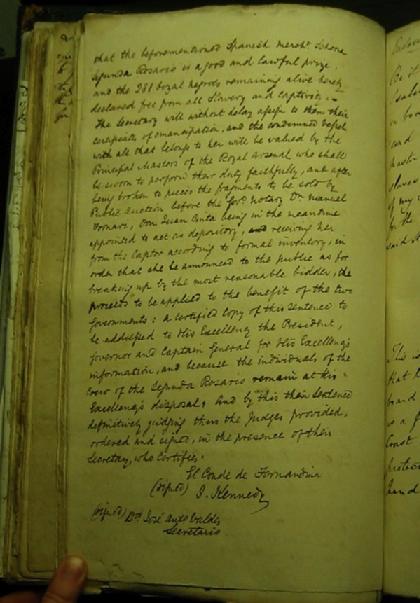 that the beforementioned Spanish merch.t Schoon.
Segunda Rosario is a good and lawful prize,
and the 281 bozal negroes remaining alive hereby
declared free from all Slavery and captivity. –
The Secretary will without delay assign to them their
certificates of emancipation, and the condemned vessel
with all that belongs to her will be valued by the
Principal Masters of the Royal Arsenal, who shall
be sworn to perform their duty faithfully, and after
being broken to pieces the fragments to be sold by
Public auction before the Gov.t notary D.n Manuel
Fornari, Don Juan being in the meantime
appointed to act as depository, and receiving her
from the Captor according to formal inventory, in
order that she be announced to the public as for
breaking up by the most reasonable bidder, the
proceeds to be applied to the benefit of the two
Governments: a certified copy of this Sentence to
be addressed to His Excellency the President,
Governor and Captain General for His Excellency's
information, and because the individuals of the
Crew of the Segunda Rosario remain at His
Excellency's disposal; And by this their Sentence
definitively judging thus the Judges provided,
ordered and signed, in the presence of their
Secretary, who Certifies.
El Conde de Fernandina
(signed) J. Kennedy
(signed) D.n José Ant.o Valdes
Secretario